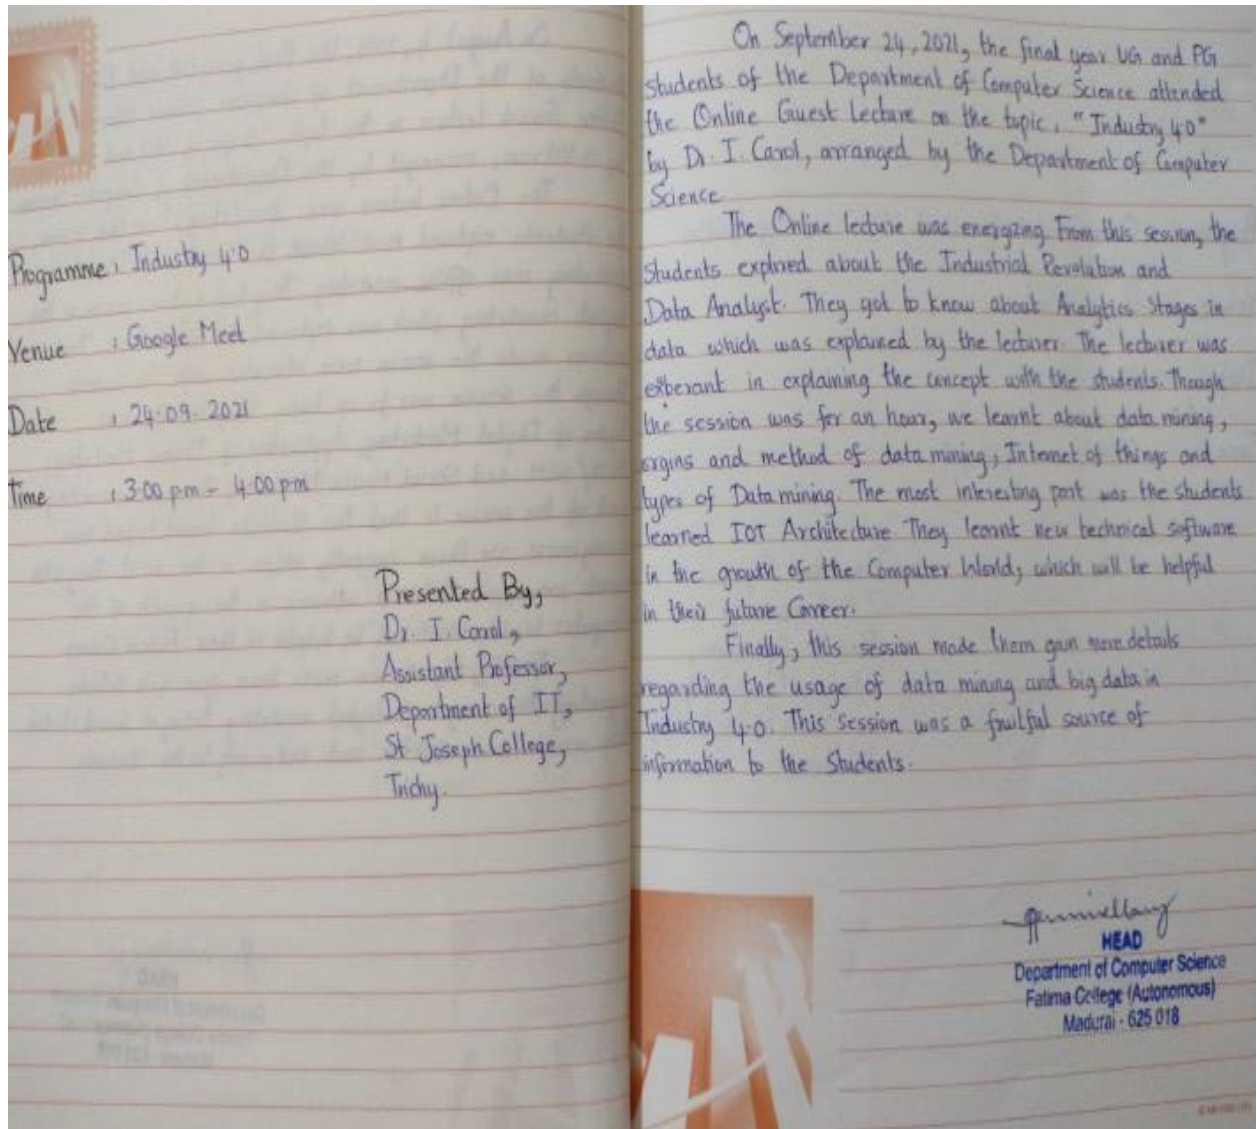 Programme : Industry 4.0
Venue : Google Meet
Date : 24.09.2021
Time : 3.00 pm - 4.00 pm
Presented By,
Dr. I. Carol,
Assistant Professor,
Department of IT,
St Joseph College,
Trichy.
On September 24, 2021, the final year UG and PG
Students of the Department of Computer Science attended
the Online Guest Lecture on the topic, "Industry 4.0"
by Dr. I. Carol, arranged by the Department of Computer
Science
The Online lecture was energizing. From this session, the
Students explored about the Industrial Revolution and
Data Analyst. They got to know about Analytics Stages in
data which was explained by the lecturer. The lecturer was
exberant in explaining the concept with the students. Though
the session was for an hour, we learnt about data mining,
orgins and method of data mining, Internet of things and
types of Data mining. The most interesting part was the students
learned IOT Architecture. They learnt new technical software
in the growth of the Computer World, which will be helpful
in their future Career.
Finally, this session made them gain more details
regarding the usage of data mining and big data in
Industry 4.0. This session was a fruitful source of
information to the Students.
HEAD
Department of Computer Science
Fatima College (Autonomous)
Madurai - 625 018